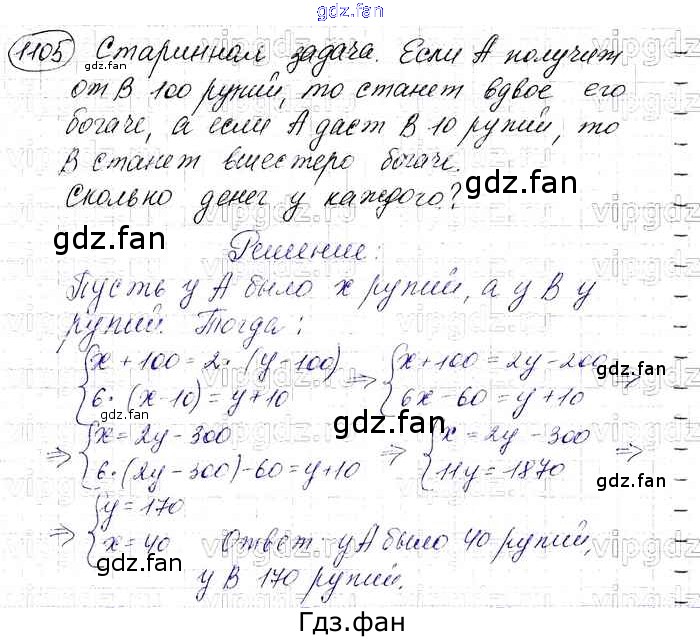 gdz.fan
1105 Старинная задача. Если А получит
от В 100 рупий, то станет вдвое его
богаче, а если А даст В 10 рупий, то
В станет вшестеро богаче.
Сколько денег у каждого?
gdz.fan
gdz.fan
gdz.fan
Решение:
Пусть у А было x рупий, а у В y
рупий. Тогда:
{x + 100 = 2 · (y - 100) => {x + 100 = 2y - 200 =>
{6 · (x - 10) = y + 10 {6x - 60 = y + 10
gdz.fan
gdz.fan
gdz.fan
=> {x = 2y - 300 => {x = 2y - 300 =>
{6 · (2y - 300) - 60 = y + 10 {11y = 1870
=> {y = 170
{x = 40 Ответ: у А было 40 рупий,
у В 170 рупий.
gdz.fan
gdz.fan
Гдз.фан